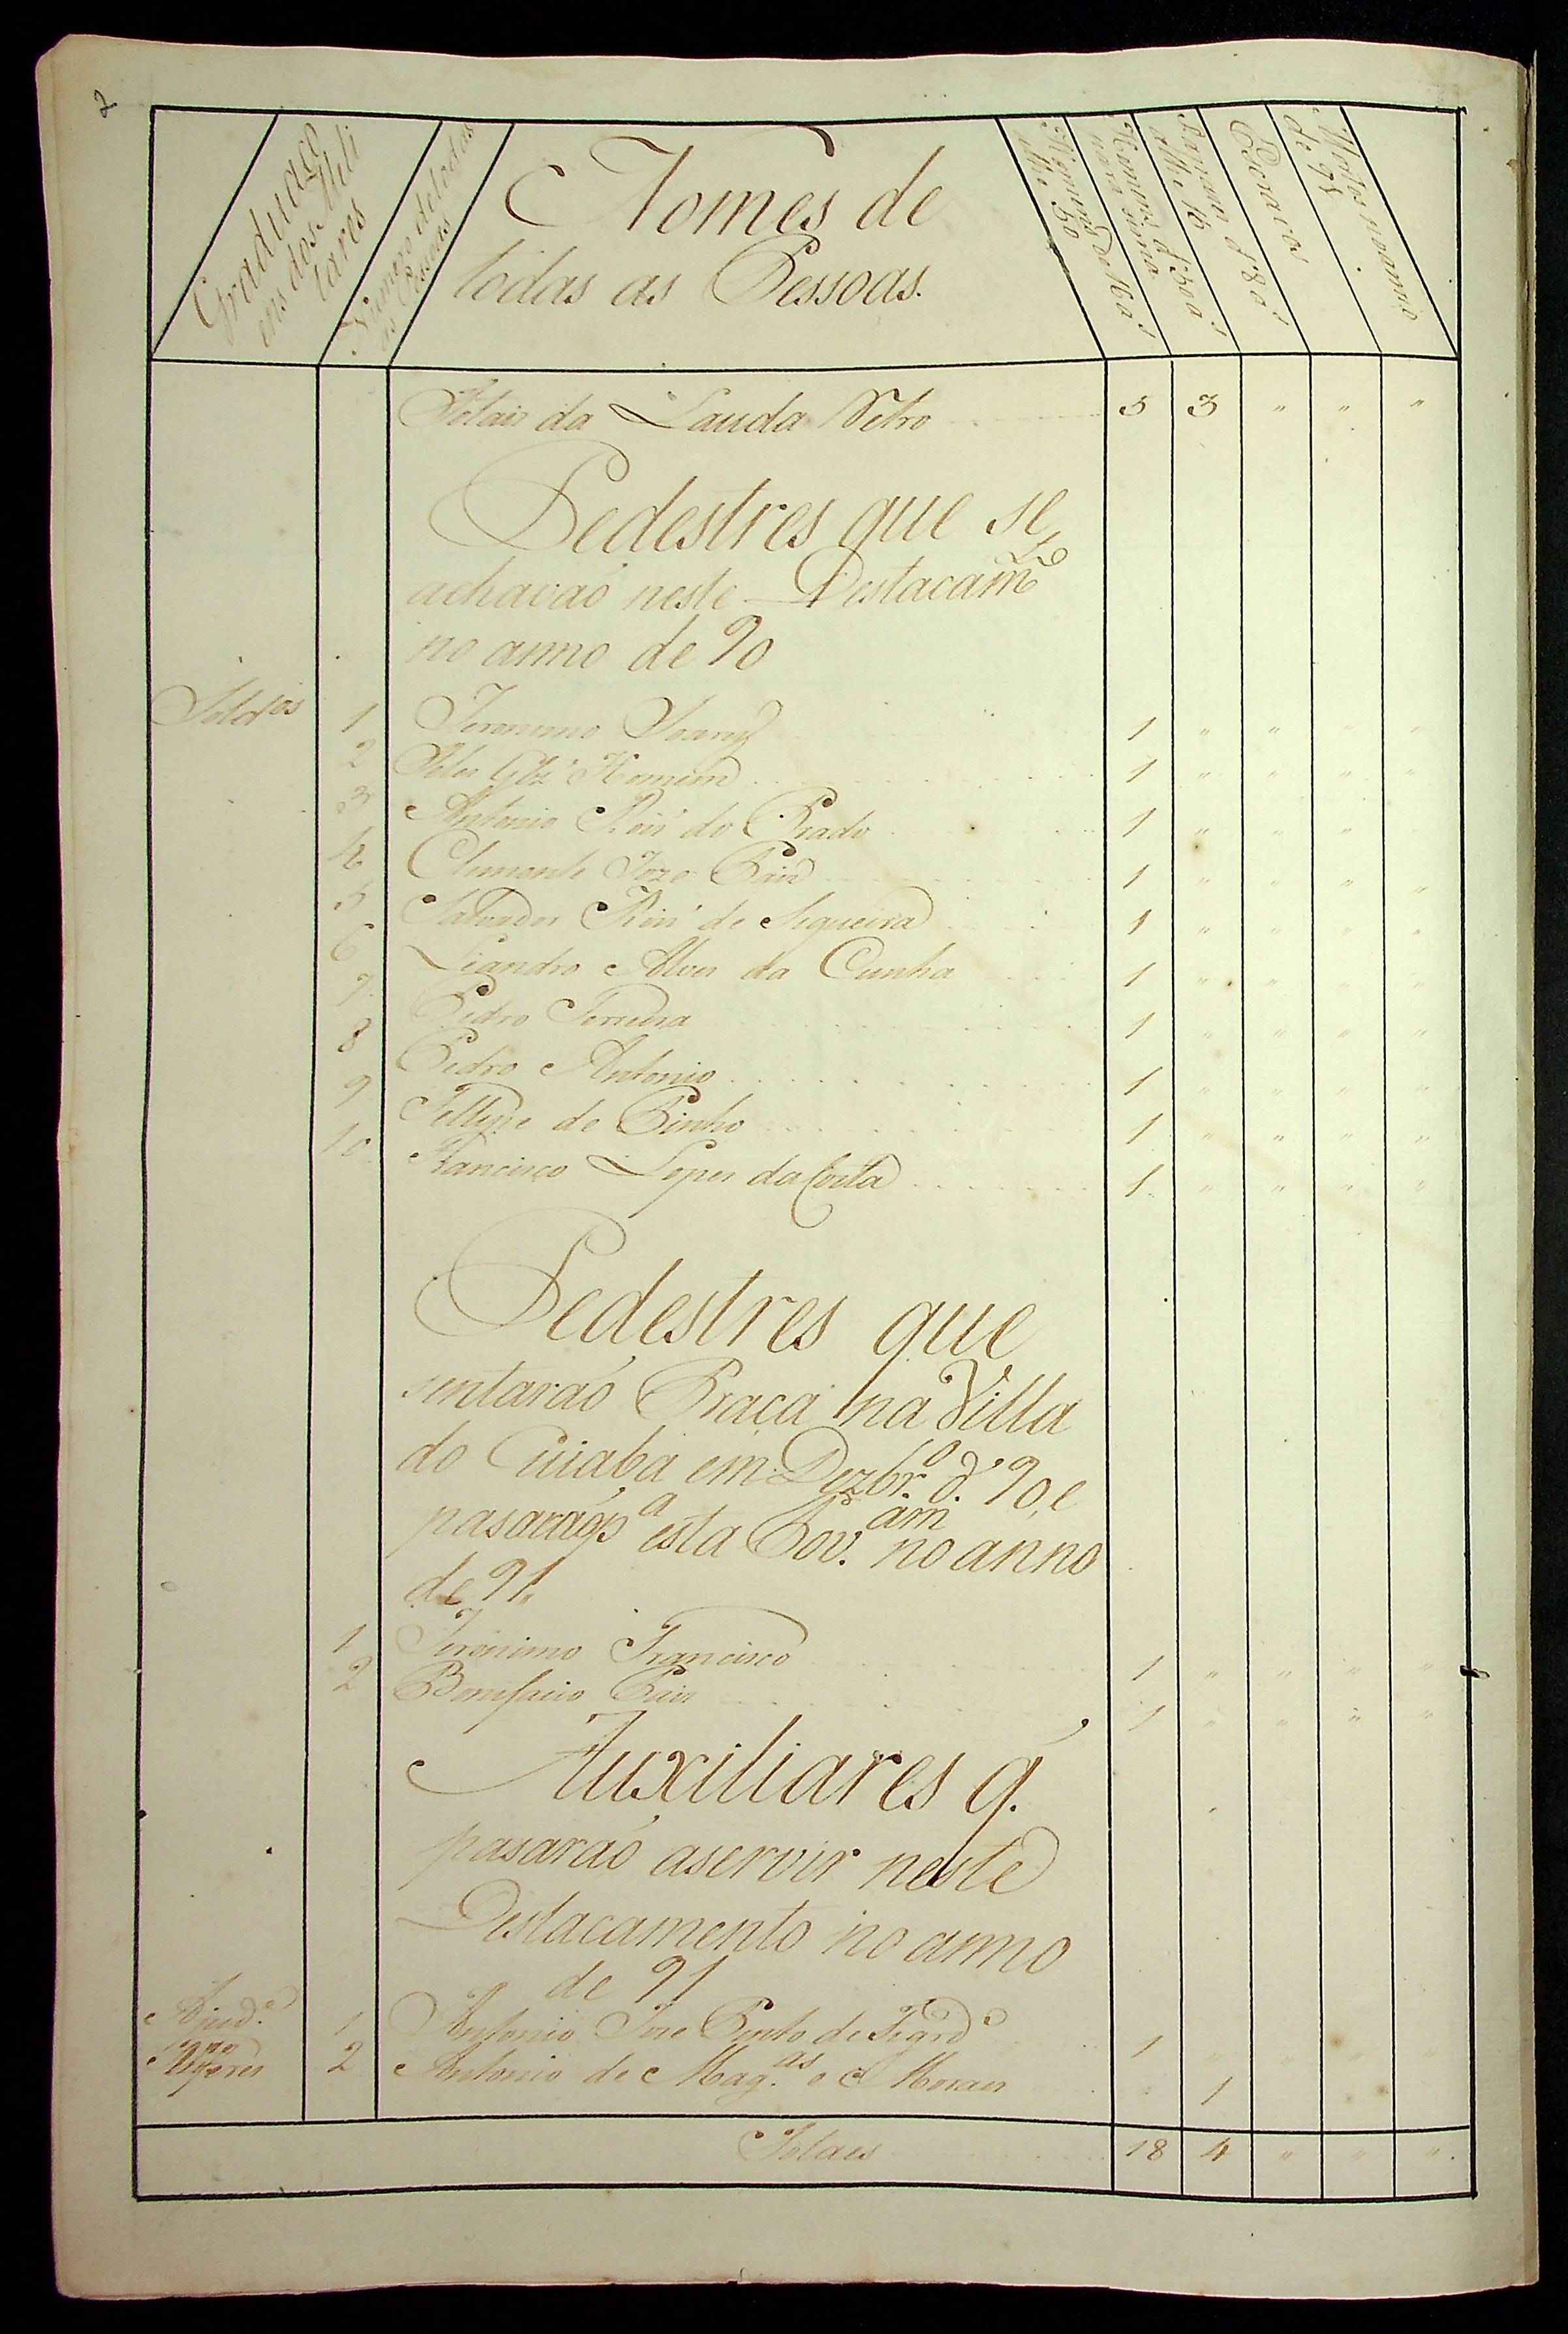 2
Graduaço
ens dos Mili
tares
Numero de todas
as Pessoas
Nomes de
todas as Pessoas.
Homens de 16 a's
athe 50
Homens d' 50 a's
para sima
Rapazes d' 8 a's
athe 16
Escravos
Mortos no anno
de 95
Totais da Lauda Retro 5 3 " " "
Pedestres que se
achavaõ neste Destacam.to
no anno de 90
Sold.os 1 Jeronimo Soares 1 " " " "
2 Glz' Homem 1 " " " "
3 Antonio Roiz' do Prado 1 " " " "
4 Clemente Joze Pais 1 " " " "
5 Salvador Roiz' de Siqueira 1 " " " "
6 Leandro Alves da Cunha 1 " " " "
7 Pedro Ferreira 1 " " " "
8 Pedro Antonio 1 " " " "
9 Fellype de Pinho 1 " " " "
10 Francisco Lopes da Costa 1 " " " "
Pedestres que
sentaraó Praça na Villa
do Cuiaba em Dezbr.o d. 90, e
pasaraó p.a esta Pov.am no anno
de 91.
1 Jeronimo Francisco 1 " " " "
2 Bonifacio Pais 1 " " " "
Auxiliares q.
pasaraó aservir neste
Destacamento no anno
de 91
Ajud.e 1 Antonio Joze Pinto de Figrd.o 1 " " " "
Alferes 2 Antonio de Mag.as e Moraes " 1
Totaes 18 4 " " "